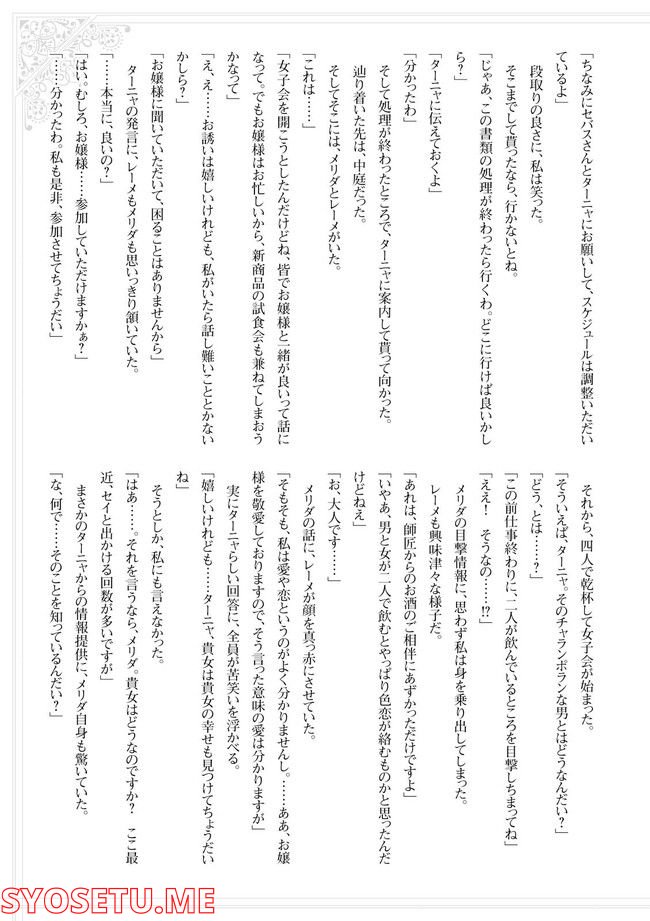 「ちなみにセバスさんとターニャにお願いして、スケジュールは調整いただい
ているよ」
段取りの良さに、私は笑った。
そこまでして貰ったなら、行かないとね。
「じゃあ、この書類の処理が終わったら行くわ。どこに行けば良いかし
ら？」
「ターニャに伝えておくよ」
「分かったわ」
そして処理が終わったところで、ターニャに案内して貰って向かった。
辿り着いた先は、中庭だった。
そしてそこには、メリダとレーメがいた。
「これは……」
「女子会を開こうとしたんだけどね、皆でお嬢様と一緒が良いって話に
なって。でもお嬢様はお忙しいから、新商品の試食会も兼ねてしまおう
かなって」
「え、え……お誘いは嬉しいけれども、私がいたら話し難いこととかない
かしら？」
「お嬢様に聞いていただいて、困ることはありませんから」
ターニャの発言に、レーメもメリダも思いっきり頷いていた。
「……本当に、良いの？」
「はい。むしろ、お嬢様……参加していただけますかぁ？」
「……分かったわ。私も是非、参加させてちょうだい」
それから、四人で乾杯して女子会が始まった。
「そういえば、ターニャ。そのチャランポランな男とはどうなんだい？」
「どう、とは……？」
「この前仕事終わりに、二人が飲んでいるところを目撃しちまってね」
「ええ！　そうなの……!?」
メリダの目撃情報に、思わず私は身を乗り出してしまった。
レーメも興味津々な様子だ。
「あれは、師匠からのお酒のご相伴にあずかっただけですよ」
「いやぁ、男と女が二人で飲むとやっぱり色恋が絡むものかと思ったんだ
けどねえ」
「お、大人です……」
メリダの話に、レーメが顔を真っ赤にさせていた。
「そもそも、私は愛や恋というのがよく分かりませんし。……ああ、お嬢
様を敬愛しておりますので、そう言った意味の愛は分かりますが」
実にターニャらしい回答に、全員が苦笑いを浮かべる。
「嬉しいけれども……ターニャ、貴女は貴女の幸せも見つけてちょうだい
ね」
そうとしか、私にも言えなかった。
「はぁ……。それを言うなら、メリダ。貴女はどうなのですか？　ここ最
近、セイと出かける回数が多いですが」
まさかのターニャからの情報提供に、メリダ自身も驚いていた。
「な、何で……そのことを知っているんだい？」
SYOSETU.ME
SYOSETU.ME